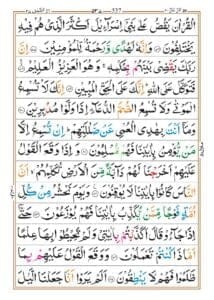 الْقُرْاٰنَ يَقُصُّ عَلٰى بَنِيْٓ اِسْرَآءِيْلَ اَكْثَرَ الَّذِيْ هُمْ فِيْهِ
يَخْتَلِفُوْنَ ۝ وَاِنَّهٗ لَهُدًى وَّرَحْمَةٌ لِّلْمُؤْمِنِيْنَ ۝ اِنَّ
رَبَّكَ يَقْضِيْ بَيْنَهُمْ بِحُكْمِهٖ ۚ وَهُوَ الْعَزِيْزُ الْعَلِيْمُ ۝
فَتَوَكَّلْ عَلَى اللّٰهِ ؕ اِنَّكَ عَلَى الْحَقِّ الْمُبِيْنِ ۝ اِنَّكَ لَا تُسْمِعُ
الْمَوْتٰى وَلَا تُسْمِعُ الصُّمَّ الدُّعَآءَ اِذَا وَلَّوْا مُدْبِرِيْنَ ۝
وَمَآ اَنْتَ بِهٰدِي الْعُمْيِ عَنْ ضَلٰلَتِهِمْ ؕ اِنْ تُسْمِعُ اِلَّا
مَنْ يُّؤْمِنُ بِاٰيٰتِنَا فَهُمْ مُّسْلِمُوْنَ ۝ وَاِذَا وَقَعَ الْقَوْلُ
عَلَيْهِمْ اَخْرَجْنَا لَهُمْ دَآبَّةً مِّنَ الْاَرْضِ تُكَلِّمُهُمْ ۙ اَنَّ
النَّاسَ كَانُوْا بِاٰيٰتِنَا لَا يُوْقِنُوْنَ ۝ وَيَوْمَ نَحْشُرُ مِنْ كُلِّ
اُمَّةٍ فَوْجًا مِّمَّنْ يُّكَذِّبُ بِاٰيٰتِنَا فَهُمْ يُوْزَعُوْنَ ۝ حَتّٰٓى
اِذَا جَآءُوْ قَالَ اَكَذَّبْتُمْ بِاٰيٰتِيْ وَلَمْ تُحِيْطُوْا بِهَا عِلْمًا
اَمَّاذَا كُنْتُمْ تَعْمَلُوْنَ ۝ وَوَقَعَ الْقَوْلُ عَلَيْهِمْ بِمَا
ظَلَمُوْا فَهُمْ لَا يَنْطِقُوْنَ ۝ اَلَمْ يَرَوْا اَنَّا جَعَلْنَا الَّيْلَ